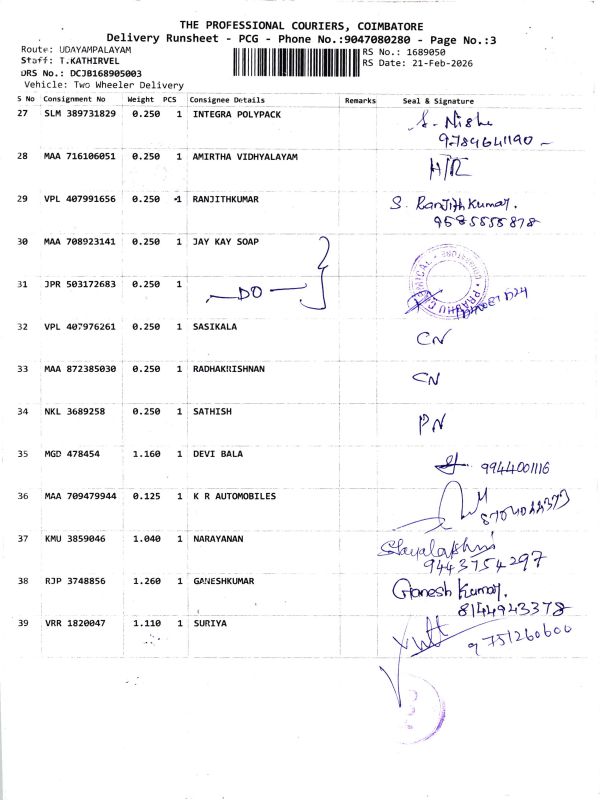 THE PROFESSIONAL COURIERS, COIMBATORE
Delivery Runsheet - PCG - Phone No.:9047080280 - Page No.:3
Route: UDAYAMPALAYAM
RS No.: 1689050
Staff: T.KATHIRVEL
RS Date: 21-Feb-2026
DRS No.: DCJB168905003
Vehicle: Two Wheeler Delivery
S No Consignment No Weight PCS Consignee Details Remarks Seal & Signature
27 SLM 389731829 0.250 1 INTEGRA POLYPACK S. Nisha
9789641190
28 MAA 716106051 0.250 1 AMIRTHA VIDHYALAYAM
29 VPL 407991656 0.250 1 RANJITHKUMAR S. Ranjith Kumar.
9585555878
30 MAA 708923141 0.250 1 JAY KAY SOAP
31 JPR 503172683 0.250 1 DO
PRABHU CHEMICAL COIMBATORE
32 VPL 407976261 0.250 1 SASIKALA CN
33 MAA 872385030 0.250 1 RADHAKRISHNAN CN
34 NKL 3689258 0.250 1 SATHISH PN
35 MGD 478454 1.160 1 DEVI BALA 9944001116
36 MAA 709479944 0.125 1 K R AUTOMOBILES
37 KMU 3859046 1.040 1 NARAYANAN
9443754297
38 RJP 3748856 1.260 1 GANESHKUMAR Ganesh Kumar.
8144943378
39 VRR 1820047 1.110 1 SURIYA 9751260600